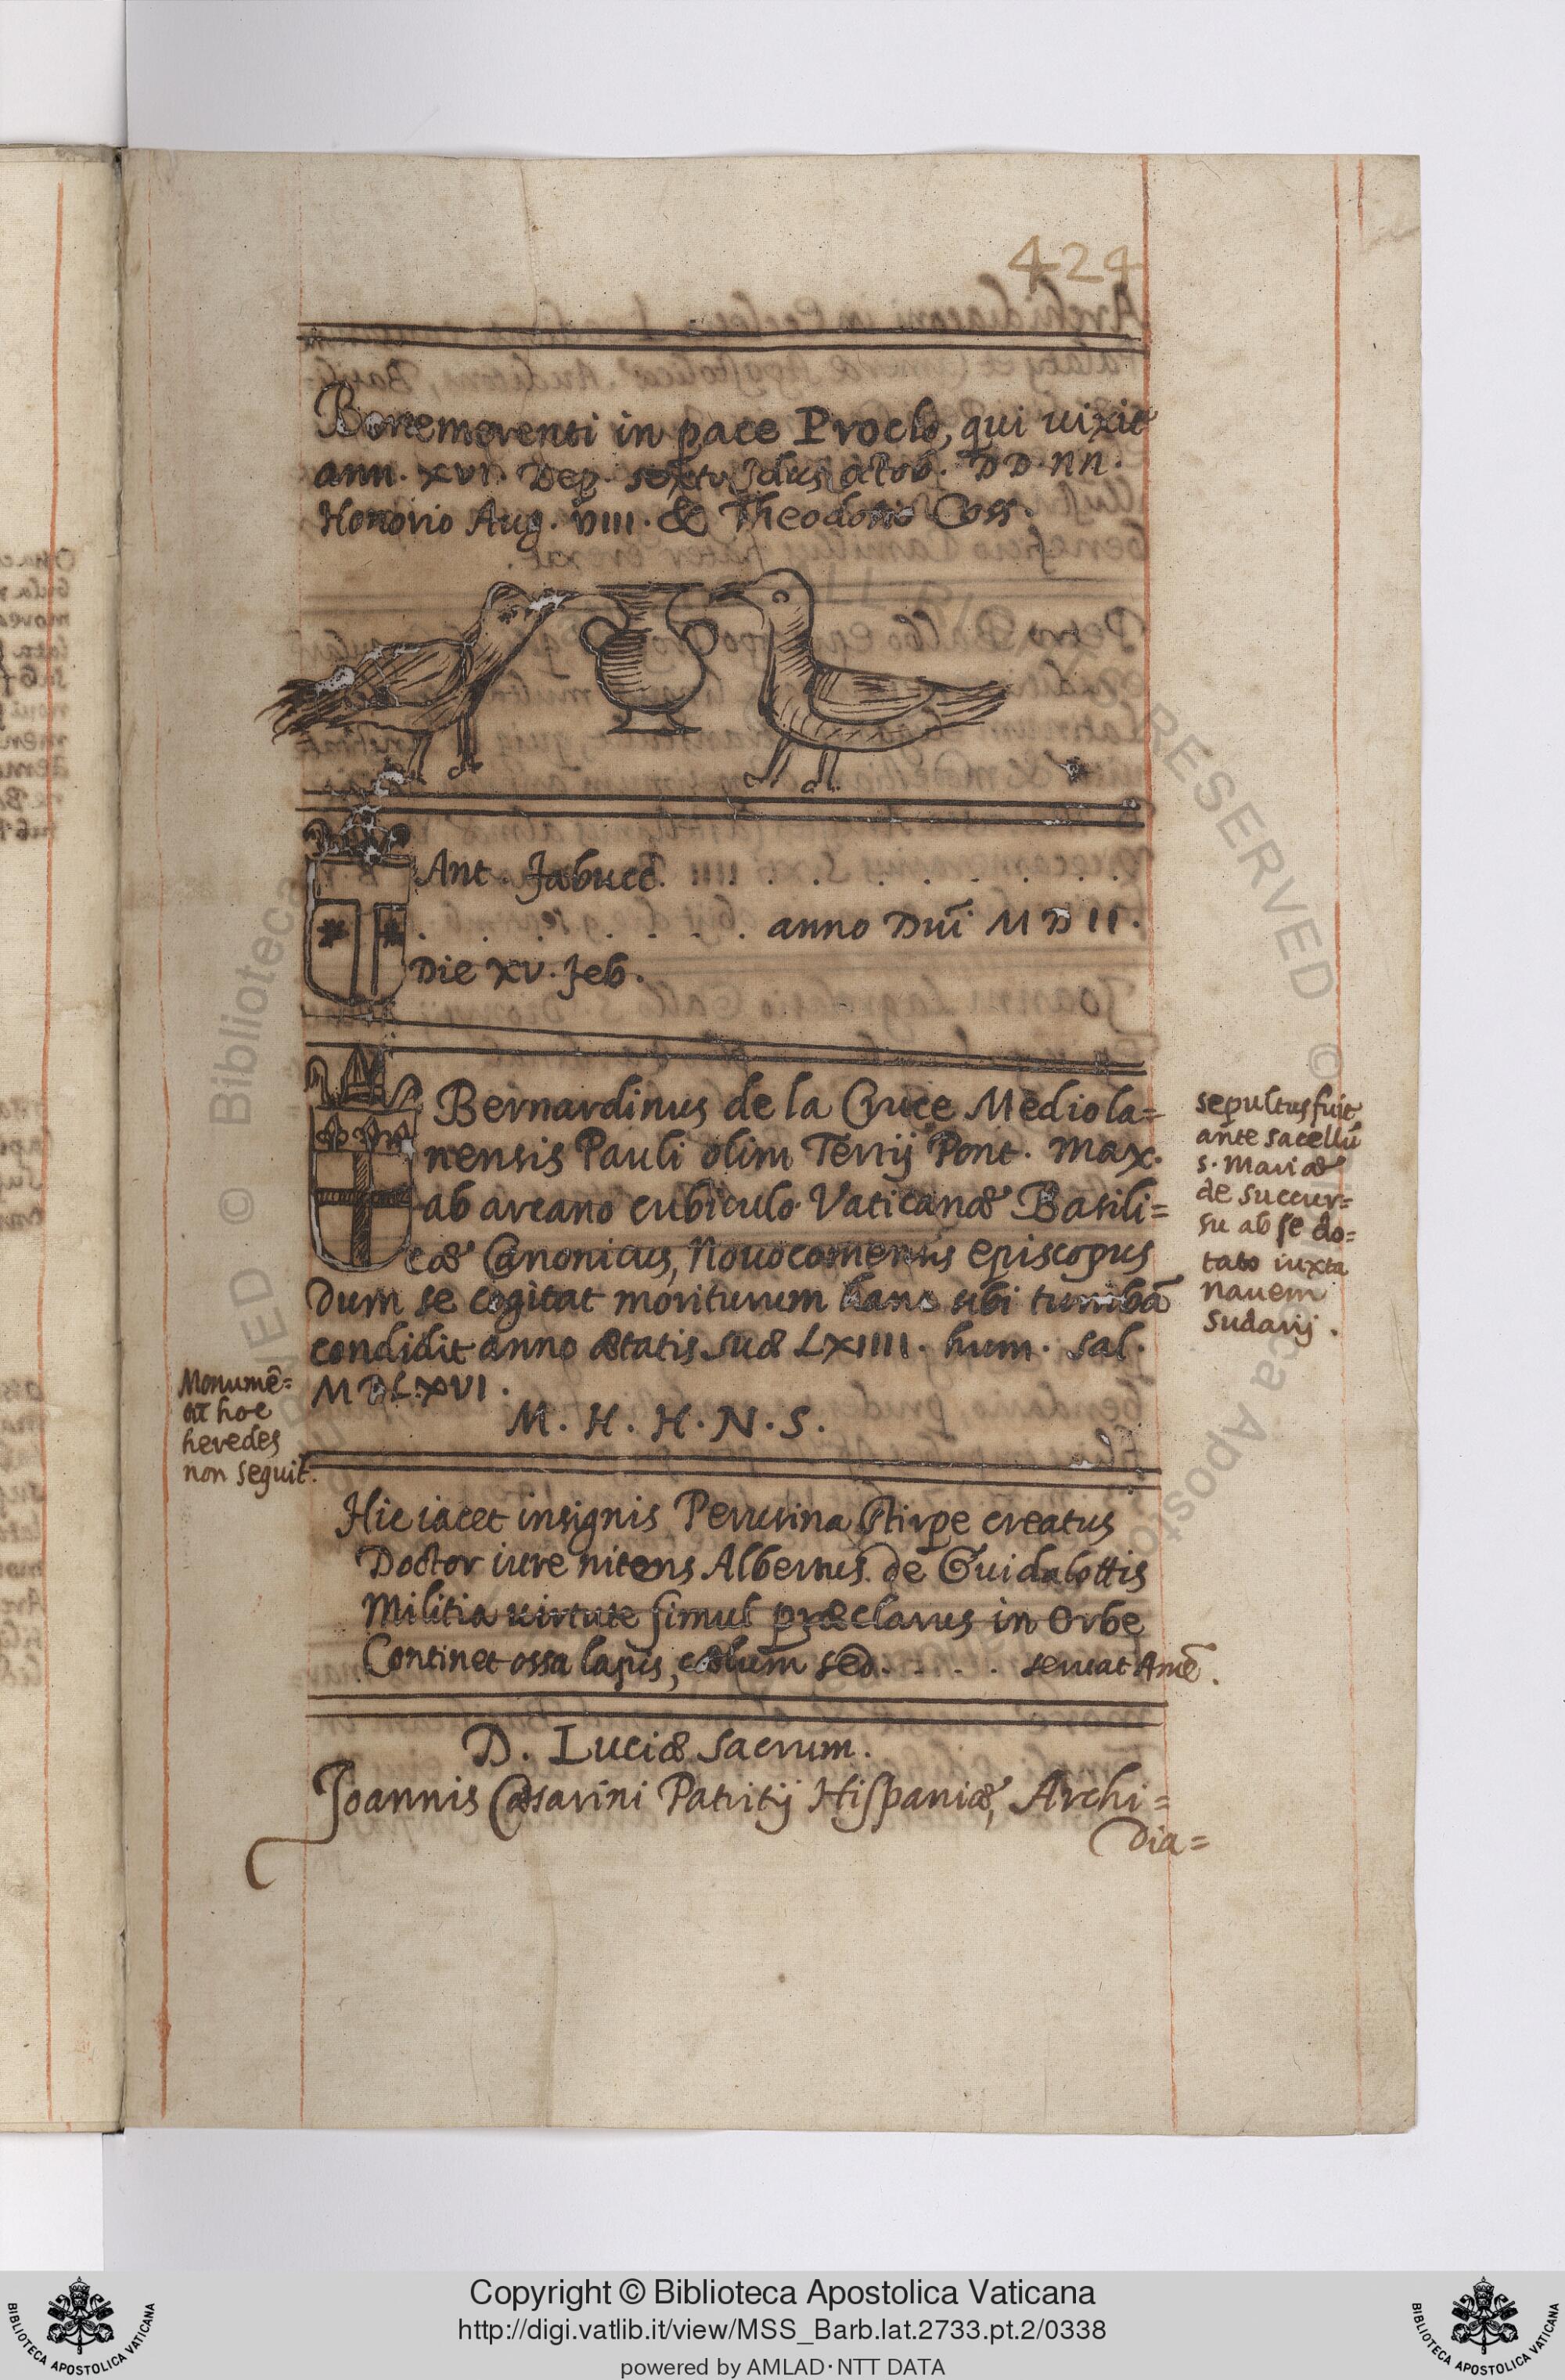 424
Benemerenti in pace Proclo, qui uixit
ann. XVI. Dep. sextu Idus octob. DD. NN.
Honorio Aug. VIII. & Theodosio Coss.
Ant. Jabucc. . . . . . . . . . .
. . . . . . . . anno Dnĩ MDII.
Die XV. Feb.
Bernardinus de la Cruce Mediola=
nensis Pauli olim Tertij Pont. Max.
ab arcano cubiculo Vaticanæ Basili=
cæ Canonicus, Nouocomensis episcopus
Dum se cogitat moriturum hanc sibi tumbã
condidit anno ætatis suæ LXIIII. hum. sal.
MDLXVI.
M. H. H. N. S.
sepultus fuit
ante sacellũ
s. Mariæ
de succur=
su ab se do=
tato iuxta
Nauem
Sudarij.
Monumẽ=
tũ hoc
heredes
non seguit.
Hic iacet insignis Perusina stirpe creatus
Doctor iure nitens Albertus de Guidalottis
Militia uirtute simul præclarus in Orbe
Continet ossa lapis, cœlum sed . . . . seruat Amẽ.
D. Luciæ Sacrum.
Joannis Cæsarini Patritij Hispaniæ, Archi=
Dia=
Copyright © Biblioteca Apostolica Vaticana
http://digi.vatlib.it/view/MSS_Barb.lat.2733.pt.2/0338
powered by AMLAD·NTT DATA
BIBLIOTECA APOSTOLICA VATICANA
BIBLIOTECA APOSTOLICA VATICANA